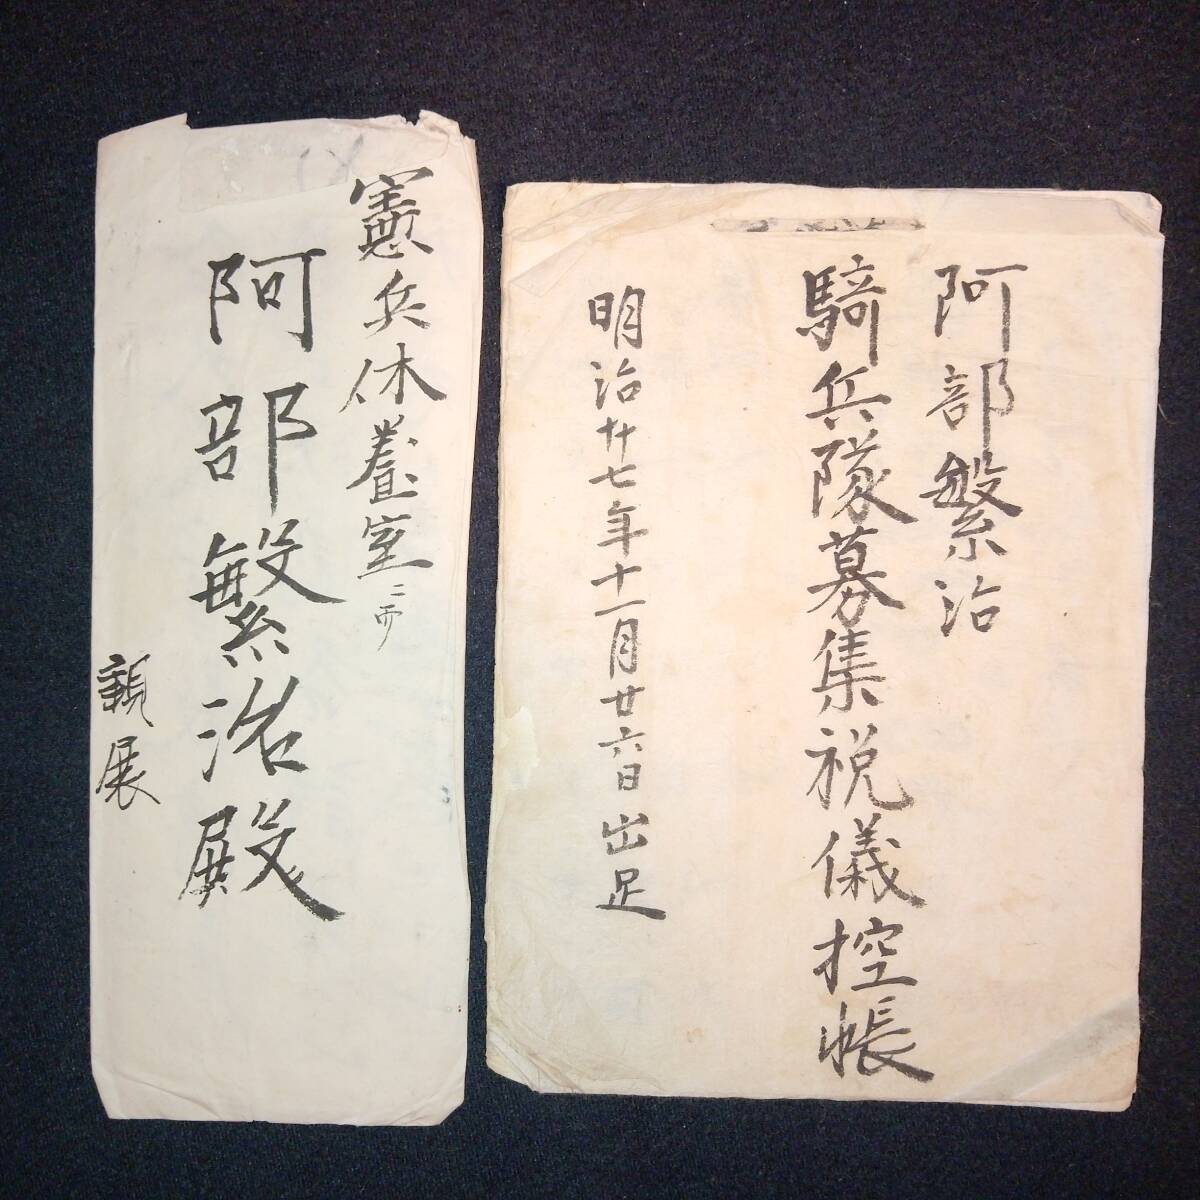 憲兵休養室ニ而
阿部繁治殿
親展
阿部繁治
騎兵隊募集祝儀控帳
明治廿七年十一月廿六日出足